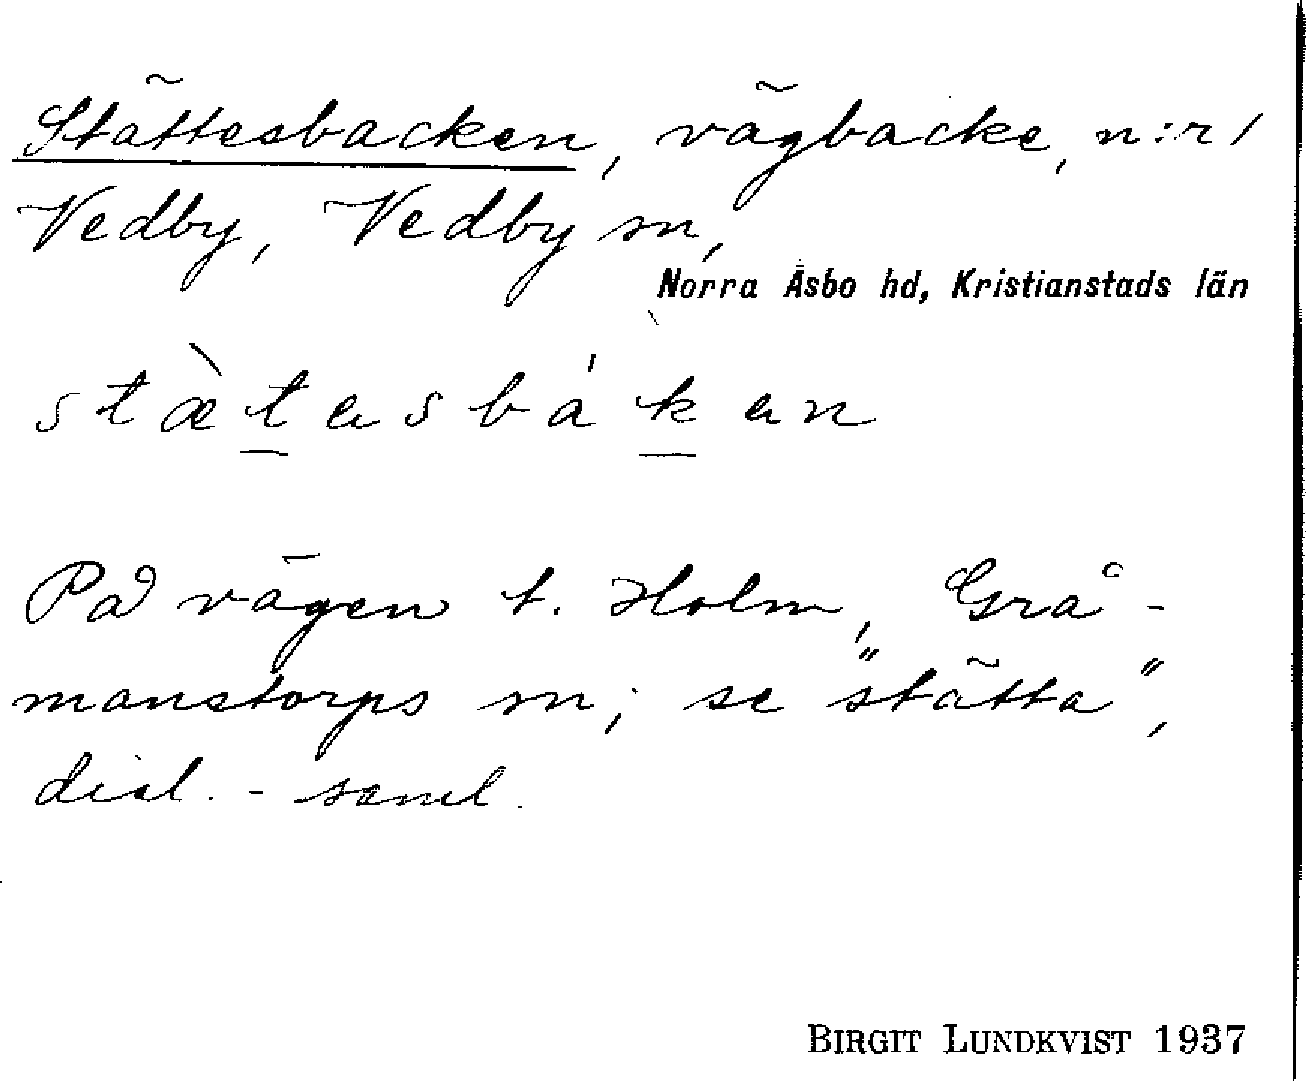 Stättesbacken, vägbacke, n:r 1
Vedby, Vedby sn,
Norra Åsbo hd, Kristianstads län
stæ̀tasbákan
På vägen t. Holm, Grå-
manstorps sn; se "stätta",
dial.-saml.
BIRGIT LUNDKVIST 1937